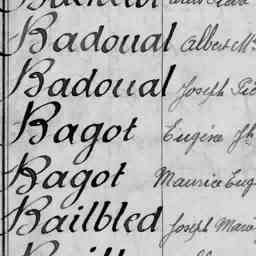 Badoual Albert M
Badoual Joseph
Bagot Eugène
Bagot Maurice Eug
Bailbled Joseph Marie